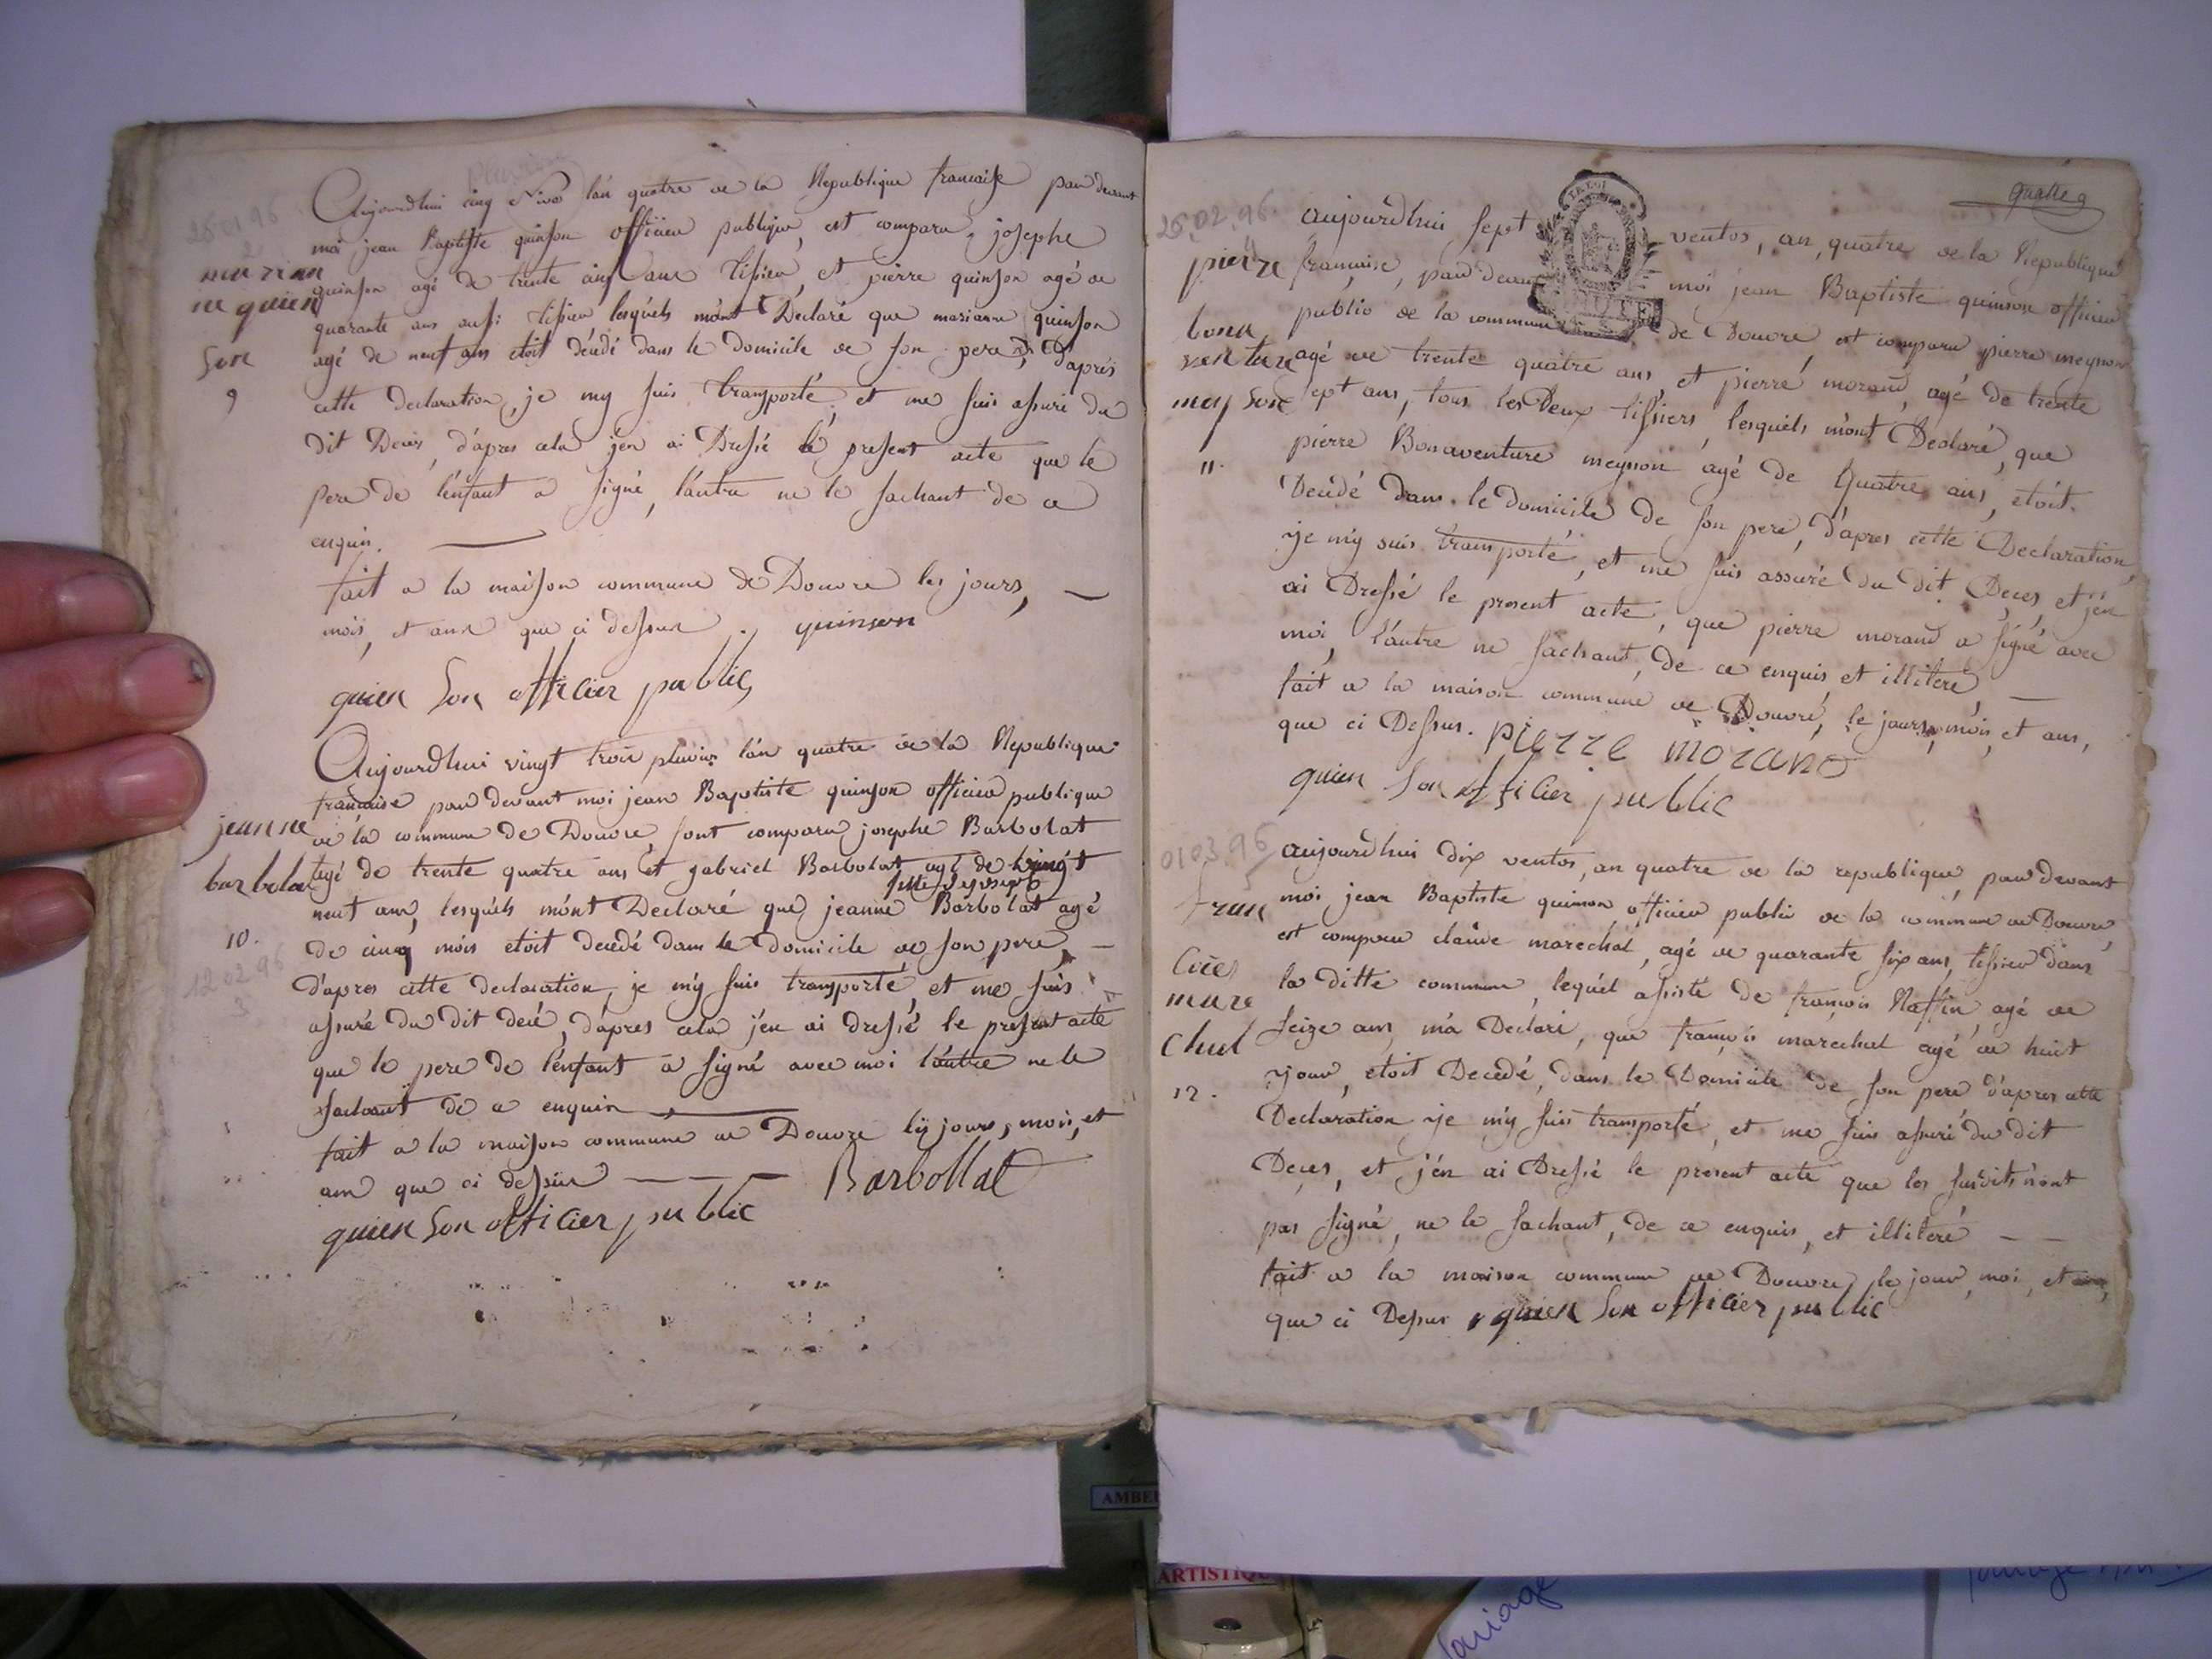 pluviose
Aujourdhui cinq Nivos l'an quatre de la Republique francaise par devant
25.01.96
2
moi jean Baptiste quinson officier publique, est comparu, josephe
marian
quinson agé de trente cinq ans tissieu, et pierre quinson agé de
ne quien
quarante ans aussi tissieu lesquels m'ont Declaré que mariane quinson
son
agé de neuf ans etoit décédé dans le domicile de son pere, D'aprés
9
cette declaration, je my suis transporté et me suis assuré du
dit Deces, d'apres cela j'en ai Dressé le present acte que le
pere de l'enfant a signé, l'autre ne le sachant de ce
enquis.
fait a la maison commune de Douvre les jours,
mois, et ans que ci dessus. quinson
quien son officier public
Aujourdhui vingt trois pluvios l'an quatre de la Republique
francaise par devant moi jean Baptiste quinson officier publique
jeanne
de la commune de Douvre, sont comparu, josephe Barbolat
barbolat
agé de trente quatre ans et gabriel Barbolat agé de vingt
fille de joseph
neuf ans, lesquels m'ont Declaré que jeanne Barbolat agé
10.
de cinq mois etoit decedé dans le domicile de son pere,
12.02.96
3
d'apres cette declaration, je m'y suis transporté, et me suis
assuré du dit decé, d'apres cela j'en ai dressé le present acte
que le pere de l'enfant a signé avec moi l'autre ne le
sachant de ce enquis
fait a la maison commune de Douvre les jours, mois, et
ans que ci dessus Barbollat
quien son officier public
quatre
26.02.96
aujourdhui sept ventos, an quatre de la Republique
pierre
francaise, par devant moi jean Baptiste quinson officier
bona
public de la commune de Douvre est comparu pierre meynon
venture
agé de trente quatre ans, et pierre morand, agé de trente
may son
sept ans, tous les Deux tissiers, lesquels m'ont Declaré, que
11.
pierre Bonaventure meynon agé de quatre ans, etoit.
Decédé dans le domicile de son pere, d'apres cette Declaration,
je m'y suis transporté, et me suis assuré du dit Deces, et j'en
ai Dressé le present acte, que pierre morand a signé avec
moi, l'autre ne sachant, de ce enquis, et illiteré
fait a la maison commune de Douvre, le jours, mois, et ans,
que ci Dessus. pierre morand
quien son officier public
01.03.96
5
aujourdhui dix ventos, an quatre de la republique, par devant
fran
moi jean Baptiste quinson officier public de la commune de Douvre,
est comparu claude marechal, agé de quarante six ans, tissieu dans
cois
la ditte commune, lequel assisté de francois Naffin, agé de
mare
seize ans, m'a Declaré, que francois marechal agé de huit
chal
jour, etoit Decédé, dans le Domicile de son pere d'apres cette
12.
Declaration je m'y suis transporté, et me suis assuré du dit
Deces, et j'en ai Dressé le present acte que les susdits n'ont
pas signé, ne le sachant, de ce enquis, et illiteré
fait a la maison commune de Douvre, le jour, moi, et an,
que ci Dessus quien son officier public
AMBE
ARTISTIQU